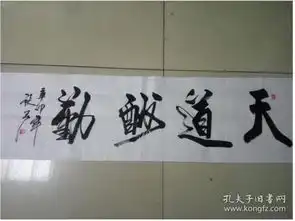 天道酬勤
孔夫子旧书网
www.kongfz.com